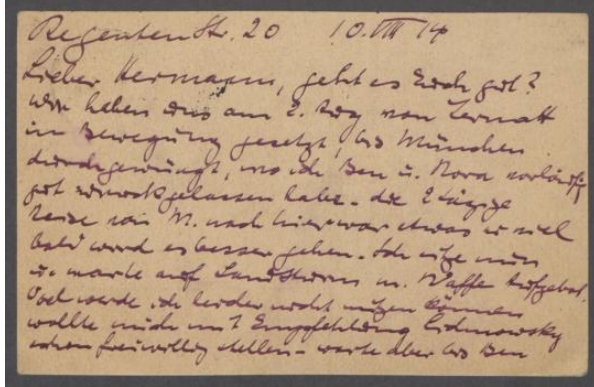 Regentenstr. 20 10.VIII 14
Lieber Hermann, geht es Euch gut?
Wir haben uns am 2. Tag von Zermatt
in Bewegung gesetzt, bis München
durchgezwängt, wo ich Ben u. Nora vorläufig
gut zurückgelassen habe. die 2 tägige
Reise von M. nach hier war etwas zu viel
bald wird es besser gehen. Ich sitze nun
u. warte auf Landsturm m. Waffe Aufgebot.
werde ich leider nicht nützen können
wollte mich mit Empfehlung Lichnowsky
schon freiwillig stellen - warte aber bis Ben